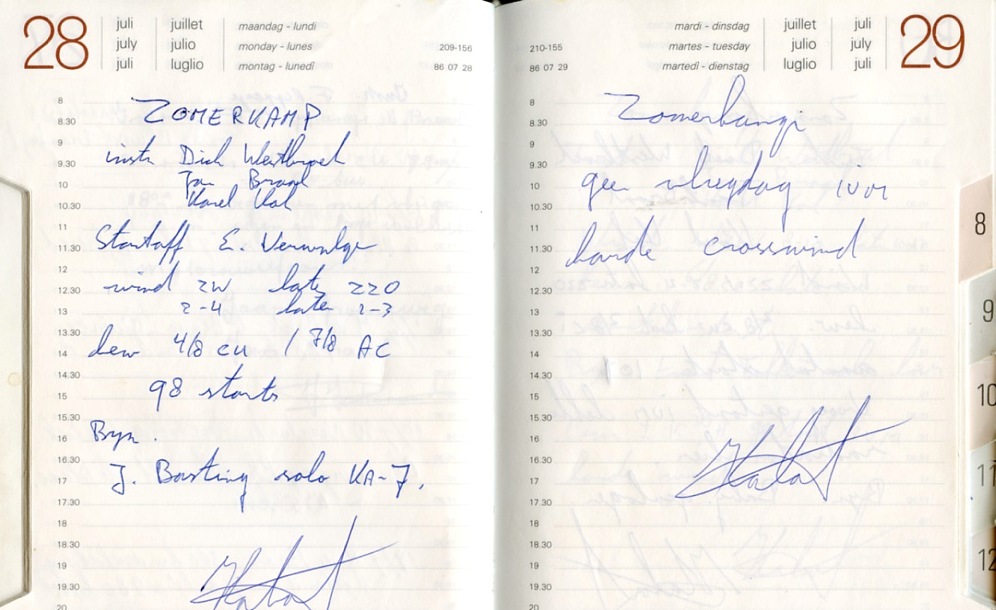 28
juli juillet maandag - lundi
july julio monday - lunes 209-156
juli luglio montag - lunedì 86 07 28
8
ZOMERKAMP
8.30
9
instr Dick
9.30
Jan Brand
10
Karel
10.30
11
E.
11.30
12
wind ZW later 220
12.30
2-4 later 2-3
13
13.30
bew 4/8 cu / 7/8 AC
14
14.30
98 starts
15
15.30
16
16.30
J. Basting solo KA-7.
17
17.30
18
18.30
19
19.30
20
mardi - dinsdag juillet juli 29
210-155 martes - tuesday julio july
86 07 29 martedì - dienstag luglio juli
8
8.30
9
9.30
geen vliegdag ivm
10
10.30
11
harde crosswind
11.30
12
12.30
13
13.30
14
14.30
15
15.30
16
16.30
17
17.30
18
18.30
19
19.30
20
8
9
10
11
12